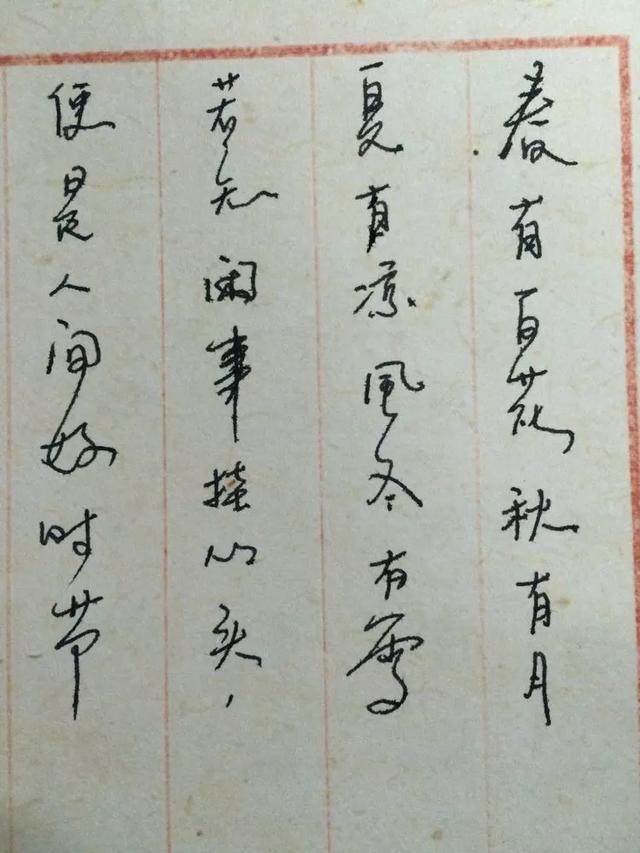 春有百花秋有月
夏有凉風冬有雪
若无闲事挂心头，
便是人间好时节